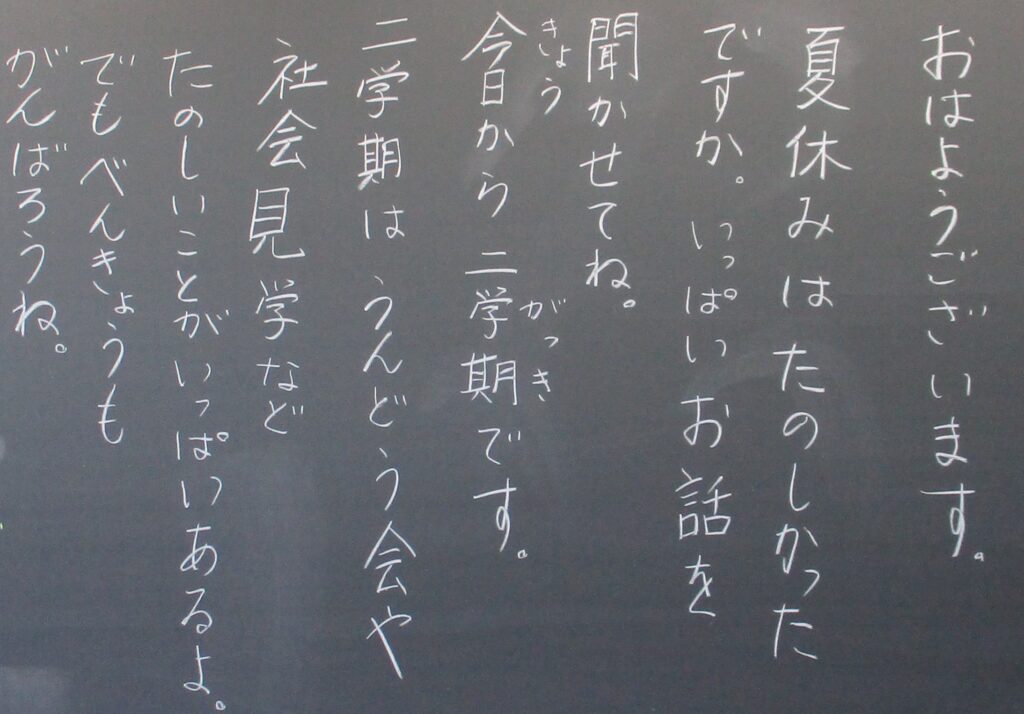 おはようございます。
夏休みはたのしかった
ですか。いっぱいお話を
聞かせてね。
きょう
今日から二学期です。
がっき
二学期はうんどう会や
社会見学など
たのしいことがいっぱいあるよ。
でもべんきょうも
がんばろうね。